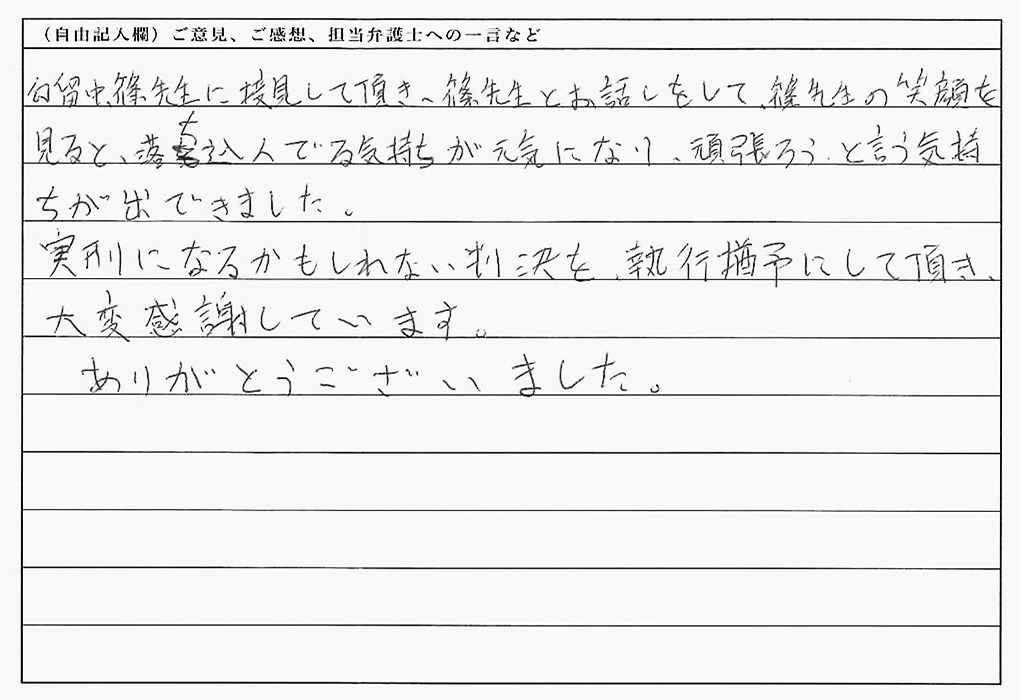 （自由記入欄）ご意見、ご感想、担当弁護士への一言など
勾留中、篠先生に接見して頂き、篠先生とお話しをして、篠先生の笑顔を
見ると、落ち込んでる気持ちが元気になり、頑張ろう、と言う気持
ちが出てきました。
実刑になるかもしれない判決を、執行猶予にして頂き、
大変感謝しています。
ありがとうございました。